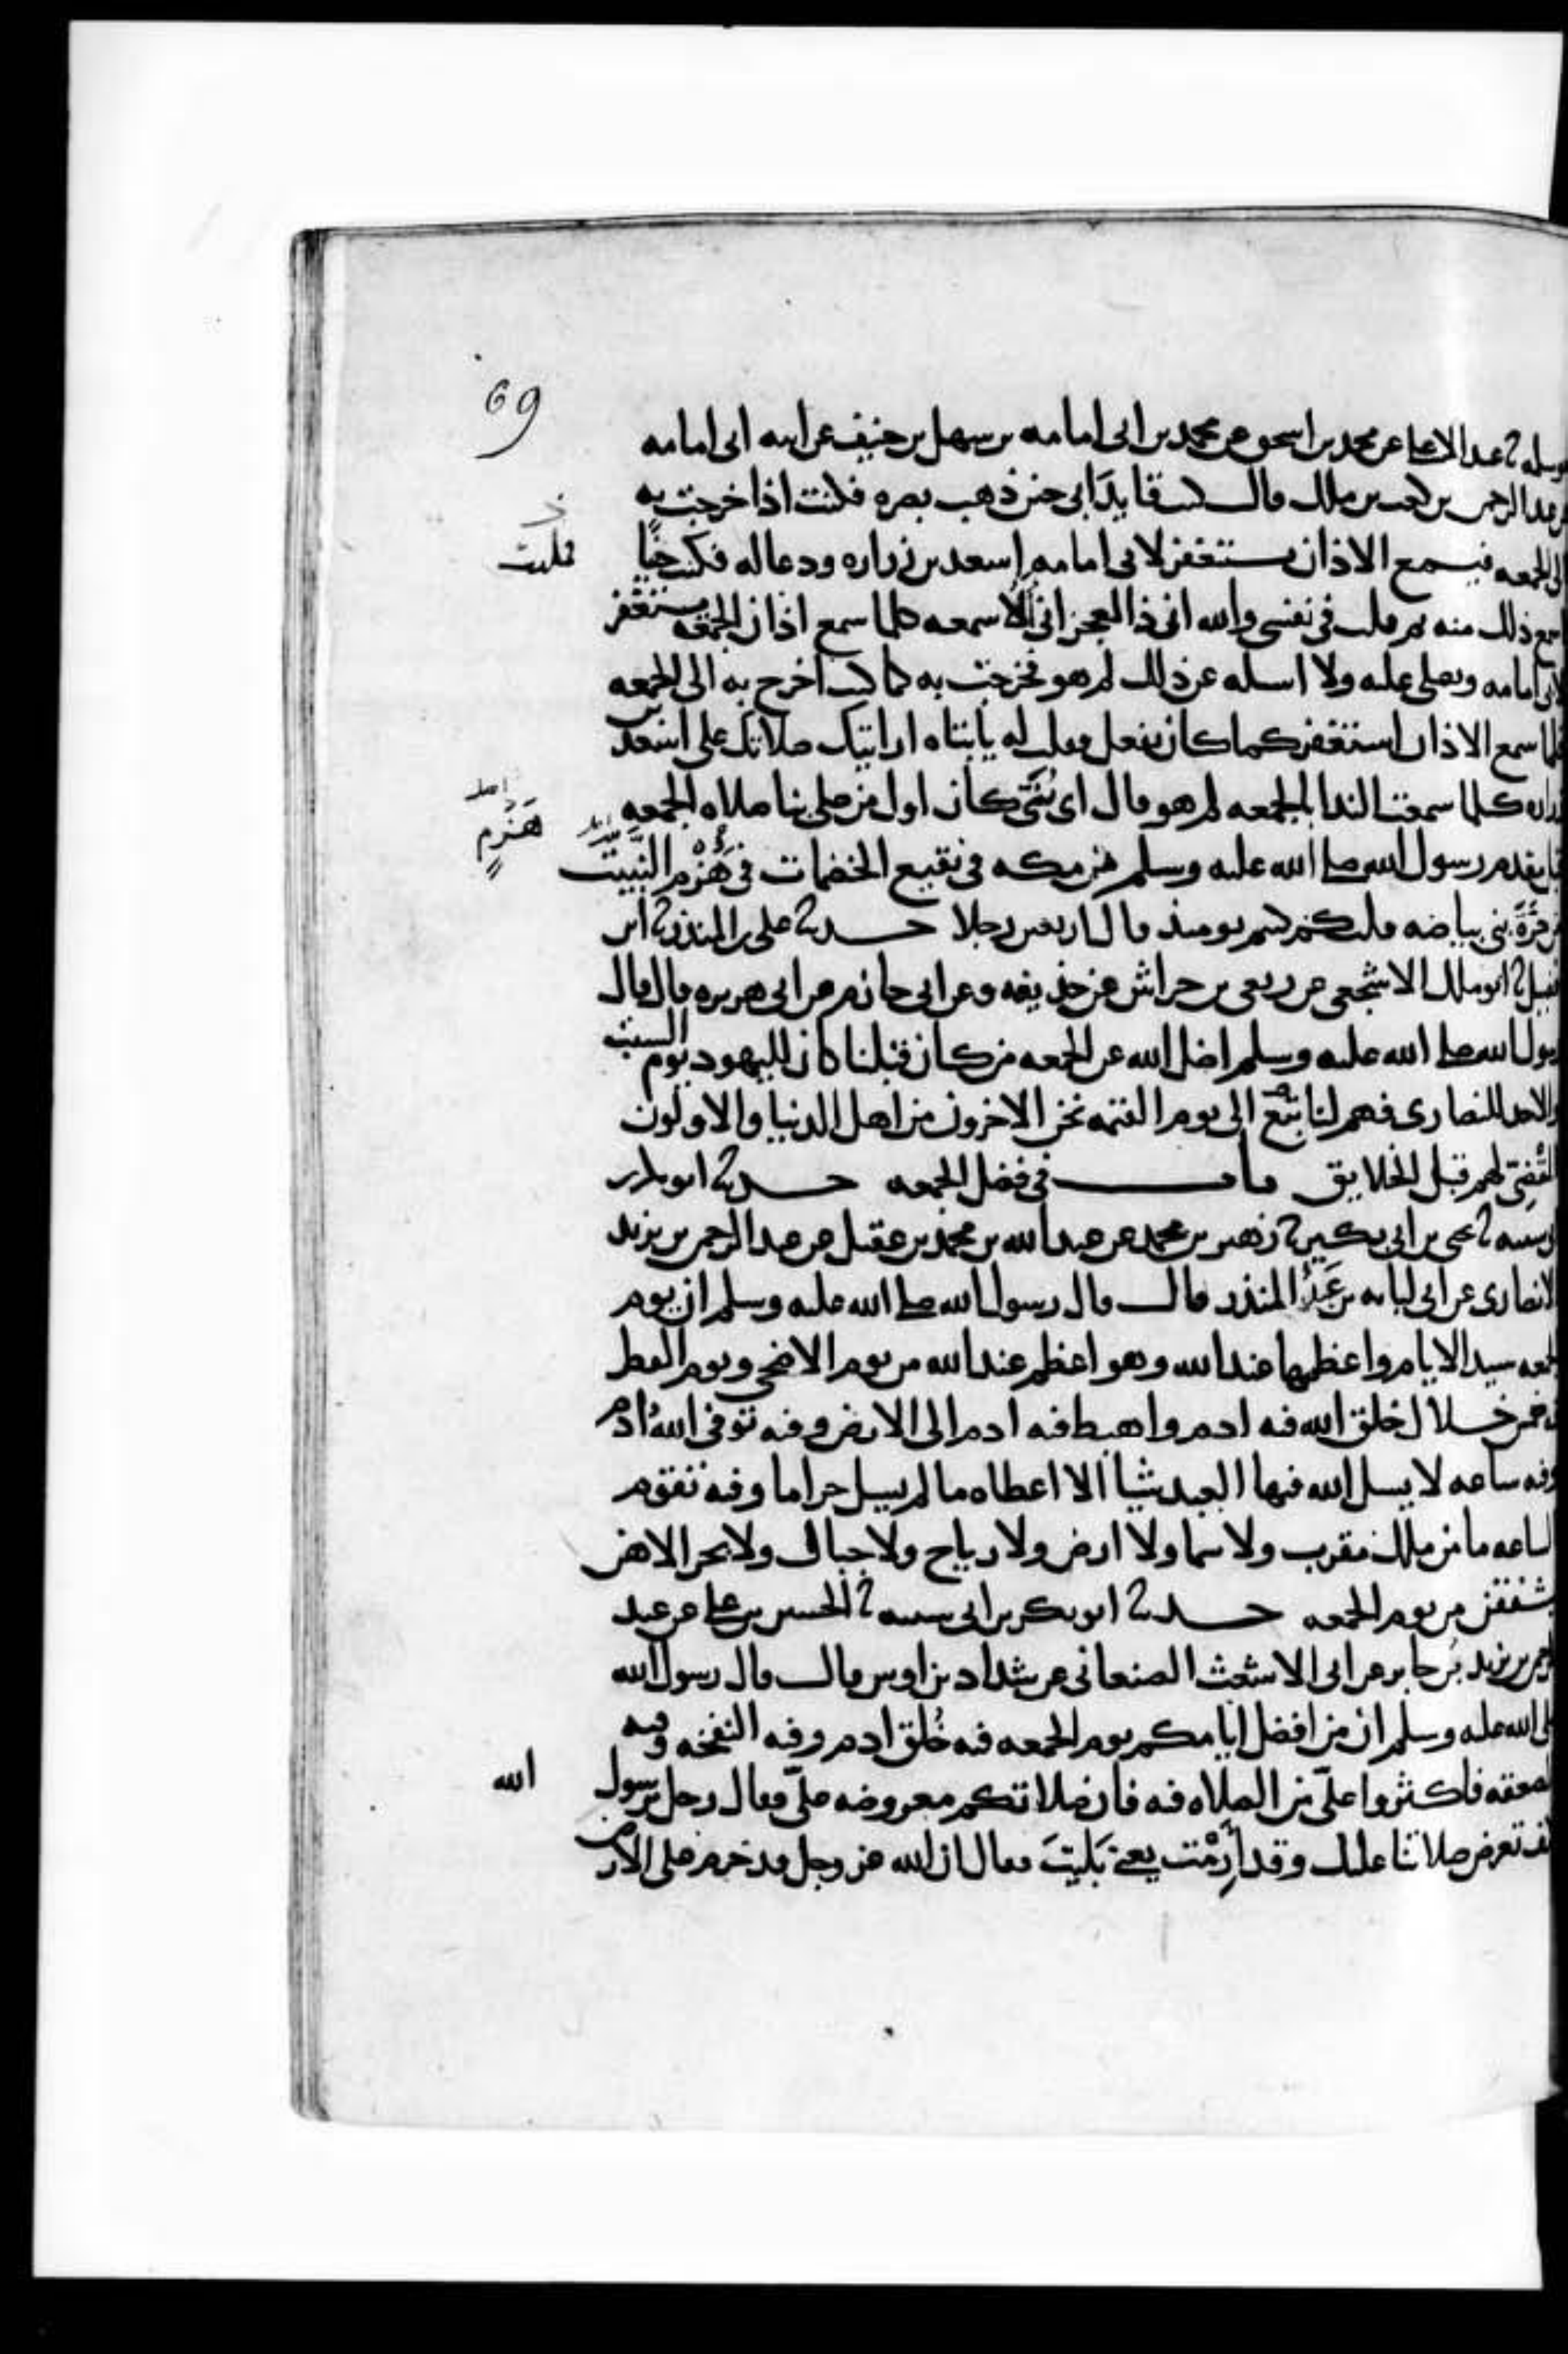 69
سلمه ثنا عبد الاعلى عن محمد بن اسحق عن محمد بن ابى امامه بن سهل بن حنيف عن ابيه ابى امامه
عبد الرحمن بن كعب بن ملك قال كنت قايد ابى حين ذهب بصره فكنت اذا خرجت به
الى الجمعه فيسمع الاذان يستغفر لابى امامه اسعد بن زراره ودعا له فكنت حينا
اسمع ذلك منه ثم قلت فى نفسى والله انى ذا لعجز انى لاسمعه كلما سمع اذان الجمعه يستغفر
لابى امامه ويصلى عليه ولا اسله عن ذلك لم هو فخرجت به كما كنت اخرج به الى الجمعه
فلما سمع الاذان استغفر كما كان يفعل فقلت له يا ابتاه ارايتك صلاتك على اسعد بن
زراره كلما سمعت الندا بالجمعه لم هو قال اى بنى كان اول من صلى بنا صلاه الجمعه
قبل مقدم رسول الله صلى الله عليه وسلم من مكه فى نقيع الخضمات فى هزم النبيت
من حرة بنى بياضه قلت كم كنتم يومئذ قال اربعين رجلا حدثنا على بن المنذر ثنا ابن
فضيل ثنا ابو ملك الاشجعى عن ربعى بن حراش عن حذيفه وعن ابى حازم عن ابى هريره قال قال
رسول الله صلى الله عليه وسلم اضل الله عن الجمعه من كان قبلنا كان لليهود يوم السبت
والاحد للنصارى فهم لنا تبع الى يوم القيمه نحن الاخرون من اهل الدنيا والاولون
المقضى لهم قبل الخلايق باب فى فضل الجمعه حدثنا ابو بكر بن
ابى شيبه ثنا يحيى بن ابى بكير ثنا زهير بن محمد عن عبد الله بن محمد بن عقيل عن عبد الرحمن بن يزيد
الانصارى عن ابى لبابه بن عبد المنذر قال قال رسول الله صلى الله عليه وسلم ان يوم
الجمعه سيد الايام واعظمها عند الله وهو اعظم عند الله من يوم الاضحى ويوم الفطر
فيه خمس خلال خلق الله فيه ادم واهبط فيه ادم الى الارض وفيه توفى الله ادم
وفيه ساعه لا يسل الله فيها العبد شيا الا اعطاه ما لم يسل حراما وفيه تقوم
الساعه ما من ملك مقرب ولا سما ولا ارض ولا رياح ولا جبال ولا بحر الا هن
يشفقن من يوم الجمعه حدثنا ابو بكر بن ابى شيبه ثنا الحسين بن على عن عبد
الرحمن بن يزيد بن جابر عن ابى الاشعث الصنعانى عن شداد بن اوس قال قال رسول الله
صلى الله عليه وسلم ان من افضل ايامكم يوم الجمعه فيه خلق ادم وفيه النفخه وفيه
الصعقه فاكثروا على من الصلاه فيه فان صلاتكم معروضه على فقال رجل يرسول الله
كيف تعرض صلاتنا عليك وقد ارمت يعنى بليت فقال ان الله عز وجل قد حرم على الارض
فلبثت
هزم